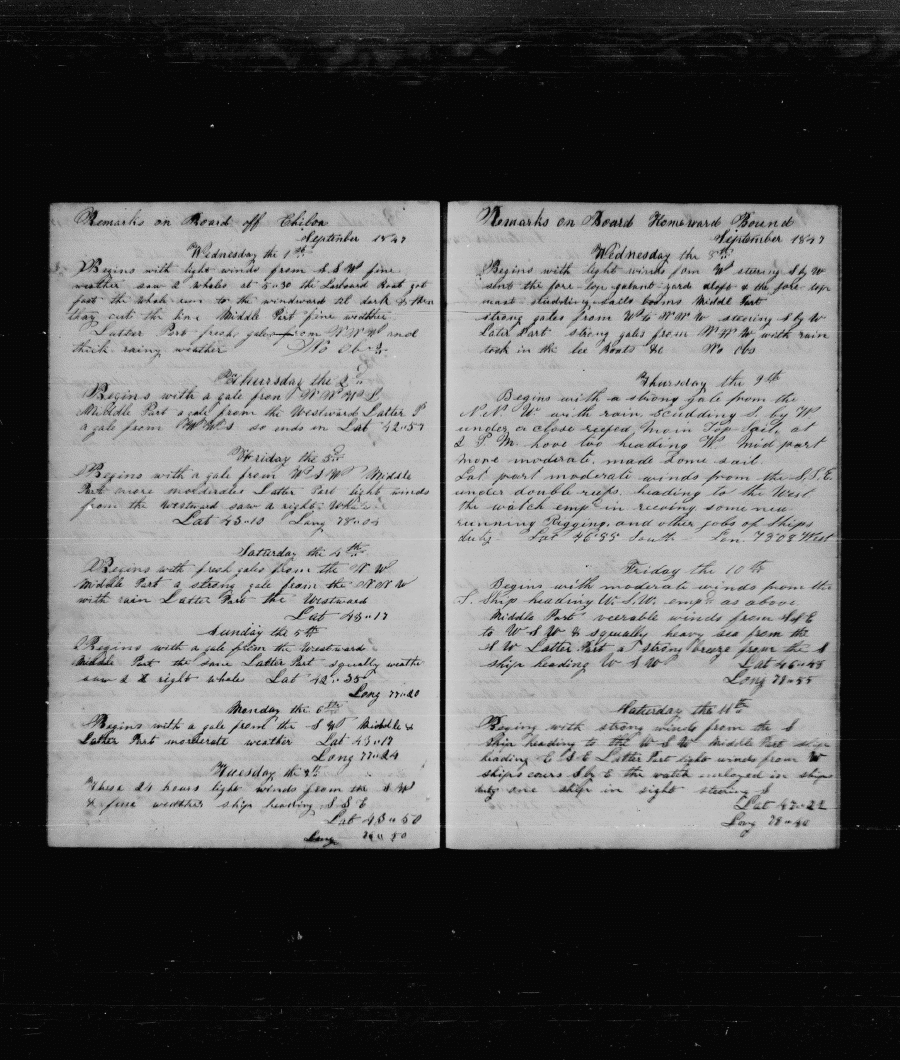 Remarks on Board off Chiloa
September 1847
Wednesday the 1st
Begins with light winds from S S W fine
weather saw 2 whales at 5-30 the Laboard Boat got
fast the whale run to the windward til dark & then
they cut the line Middle Part fine wedther
Latter Part fresh gales from W N W and
thick rainy weather No Obs
Thurrsday the 2d
Begins with a gale from W N W
Middle Part a gale from the Westward Latter P
a gale from so ends in Lat 42"57
Friday the 3d
Begins with a gale from W S W Middle
Part more moderates Latter Part light winds
from the Westward saw a right Whale
Lat 43"10 Long 78"04
Saturday the 4th
Begins with fresh gales from the N W
Middle Part a strong gale from the N N W
with rain Latter Part the Westward
Lat 43"17
Sunday the 5th
Begins with a gale from the Westward
Middle Part the same Latter Part squally weathe
saw 2 right whales Lat 42"35
Long 77"20
Monday the 6th
Begins with a gale from the S W Middle &
Latter Part morderate weather Lat 43"17
Long 77"24
Tuesday the
These 24 hours light winds from the S W
& fine wedther ship heading S S E
Lat 43"50
Long 76"50
Remarks on Board Homeward Bound
September 1847
Wednesday the 8th
Begins with light winds from W steering S by W
sent the fore top galant yards aloft & the fore top
mast studding sails booms Middle Part
strong gales from W to W N W steering S by W
Later Part strong gales from W N W with rain
took in the lee Boats &c No Obs
Thursday the 9th
Begins with a strong gale from the
N.N. W. with rain, Scudding S. by W
under a close reefed Main Top Sail, at
2 P M. hove too heading W. Mid part
more moderate. made Some sail.
Lat part moderate winds from the S.S.E.
under double reefs. heading to the West
the watch emp in reeving some new
running Rigging, and other jobs of Ships
duty Lat 46°35 South Lon. 78°08 West
Friday the 10th
Begins with moderate winds from the
S. Ship heading W.S.W. emp as above.
Middle Part veerable winds from S S E
to W S W & squally heavy sea from the
S W Latter Part a strong breeze from the S
ship heading W S W Lat 46"48
Long 78"55
Saturday the 11th
Begins with strong winds from the S
Ship heading to the W S W Middle Part ship
heading E S E Latter Part light winds from W
ships cours S by E the watch imloyed in ships
duty one ship in sight steering S
Lat 47"22
Long 78"40